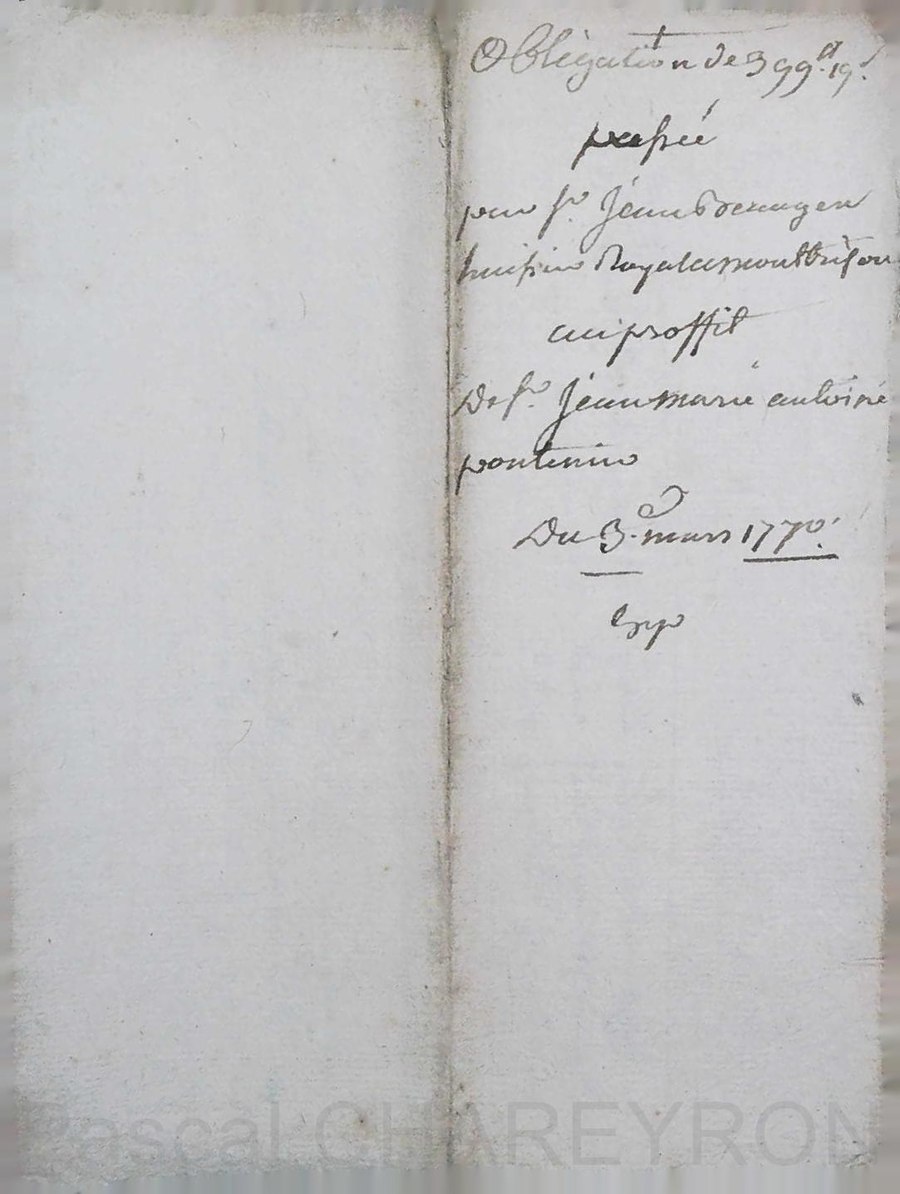 Obligation de 399ᵗᵗ 19ˢ
passée
par sʳ Jean
huissier Royal a montbrison
au proffit
De sʳ Jean marie antoine
pontemier
Du 3. mars 1770.
Exp
Pascal CHAREYRON